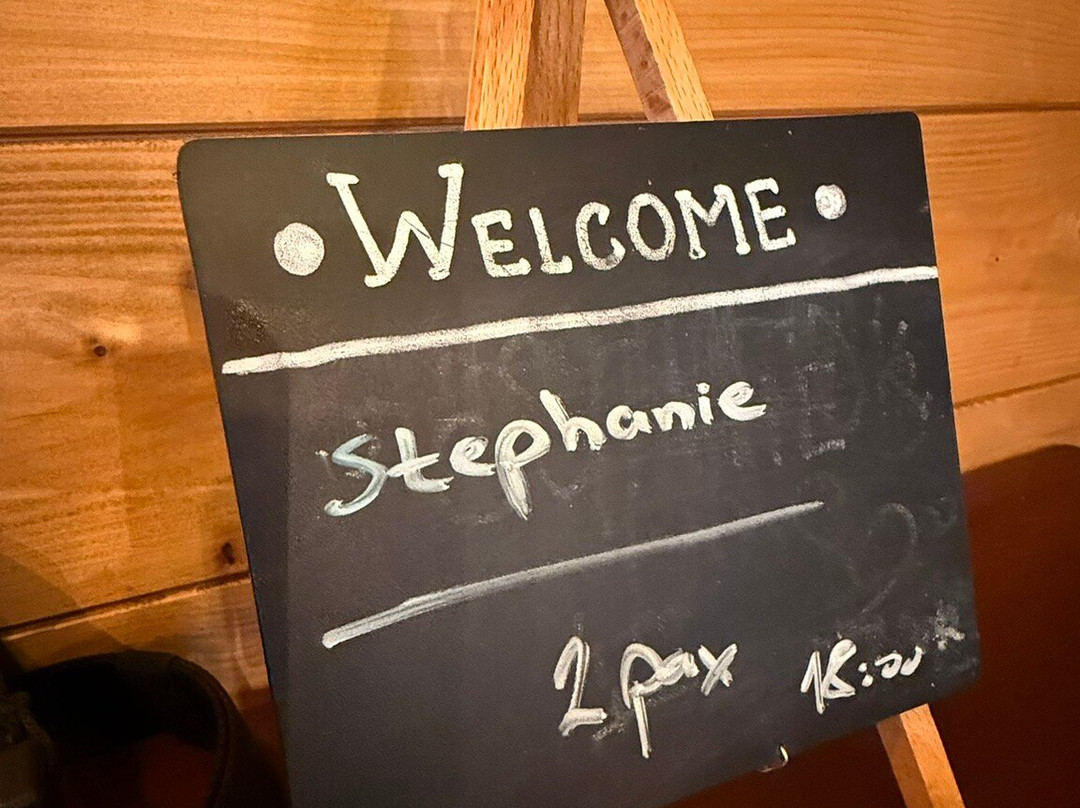 • WELCOME •
Stephanie
2 pax 18:00